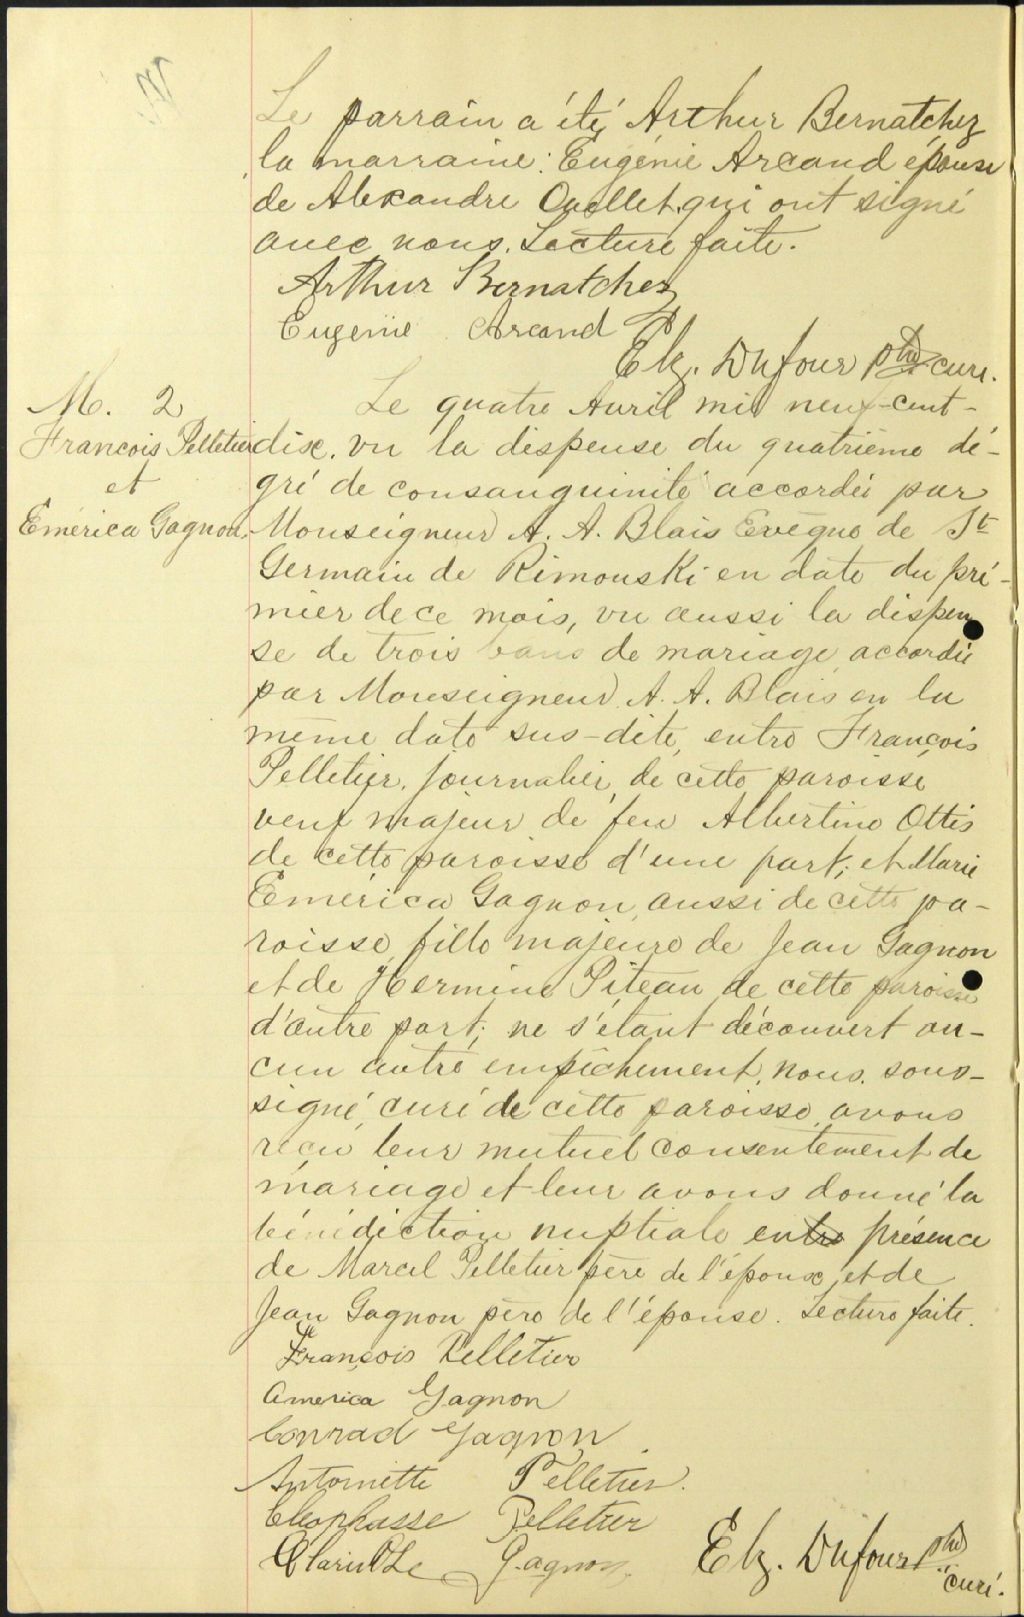 Le parrain a été Arthur Bernatchez
la marraine: Eugénie Arcand épouse
de Alexandre Ouellet, qui ont signé
avec nous. Lecture faite.
Arthur Bernatchez
Eugenie Arcand
Elz. Dufour ptre curé.
M. 2
François Pelletier
et
Émérica Gagnon.
Le quatre Avril mil neuf-cent-
dix, vu la dispense du quatrième dé-
gré de consanguinité accordée par
Monseigneur A. A. Blais Evêque de St
Germain de Rimouski en date du pre-
mier de ce mois, vu aussi la dispen
se de trois bans de mariage accordée
par Monseigneur A. A. Blais en la
même date sus-dite, entre François
Pelletier, journalier, de cette paroisse,
veuf majeur de feu Albertine Ottis
de cette paroisse d'une part; et Marie
Emérica Gagnon, aussi de cette pa-
roisse, fille majeure de Jean Gagnon
et de Hermine Piteau de cette paroisse
d'autre part; ne s'étant découvert au-
cun autre empêchement, nous, sous-
signé, curé de cette paroisse, avons
reçu leur mutuel consentement de
mariage et leur avons donné la
bénédiction nuptiale en présence
de Marcel Pelletier père de l'époux, et de
Jean Gagnon père de l'épouse. Lecture faite.
François Pelletier
America Gagnon
Conrad Gagnon
Antoinette Pelletier.
Cleophasse Pelletier
Gagnon
Elz. Dufour ptre
curé.